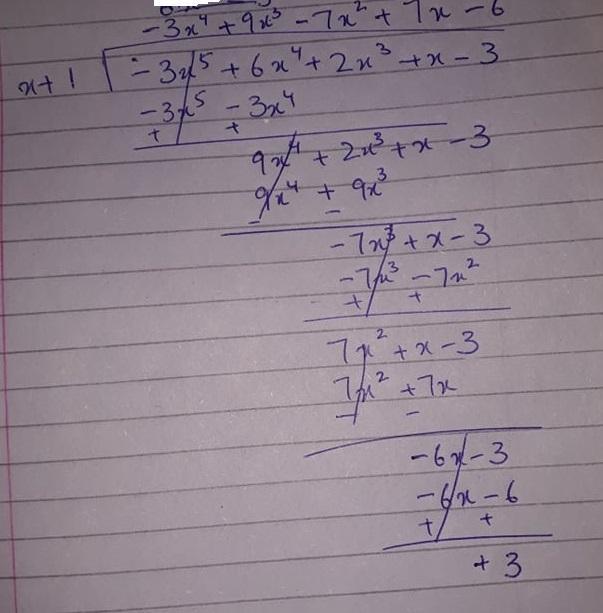 -3x⁴ + 9x³ - 7x² + 7x - 6
x+1 -3x⁵ + 6x⁴ + 2x³ + x - 3
-3x⁵ - 3x⁴
+ +
9x⁴ + 2x³ + x - 3
9x⁴ + 9x³
- -
-7x³ + x - 3
-7x³ - 7x²
+ +
7x² + x - 3
7x² + 7x
- -
-6x - 3
-6x - 6
+ +
+ 3